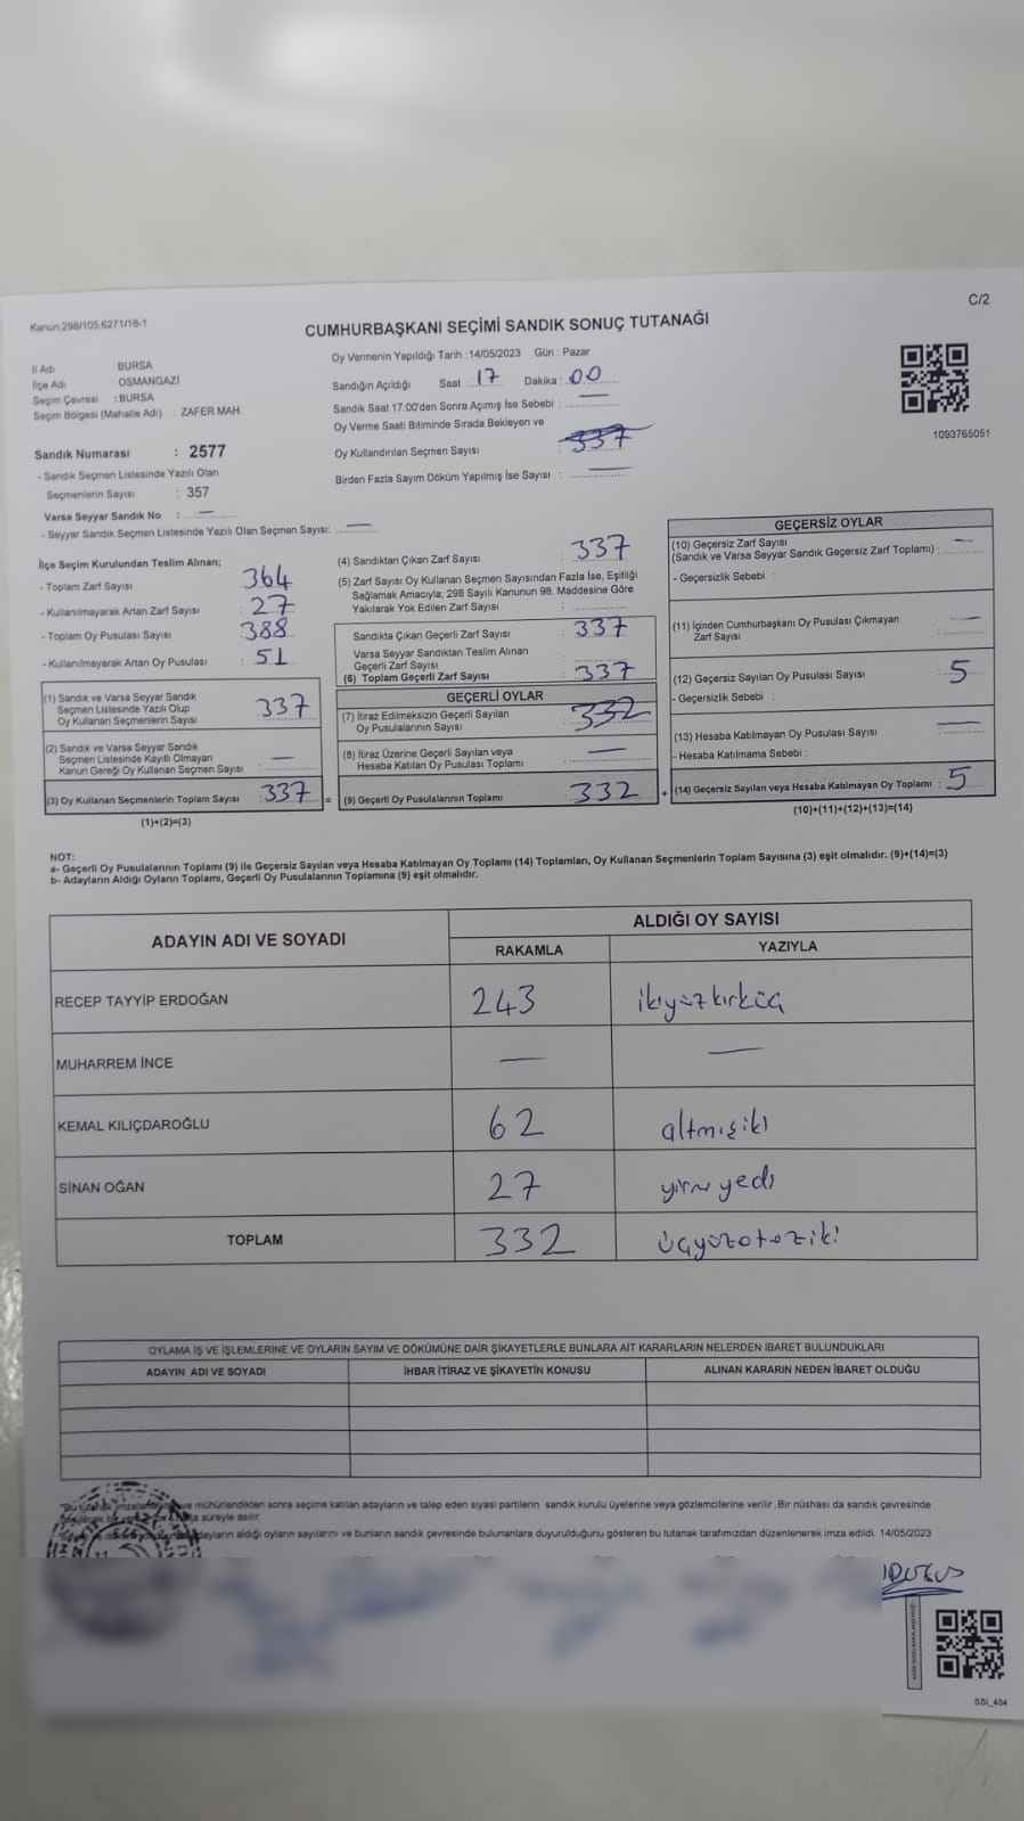 Kanun:298/105,6271/18-1
C/2
CUMHURBAŞKANI SEÇİMİ SANDIK SONUÇ TUTANAĞI
İl Adı BURSA
İlçe Adı OSMANGAZİ
Seçim Çevresi : BURSA
Seçim Bölgesi (Mahalle Adı) : ZAFER MAH.
Oy Vermenin Yapıldığı Tarih :14/05/2023 Gün : Pazar
Sandığın Açıldığı Saat 17 Dakika : 00
Sandık Saat 17:00'den Sonra Açımış İse Sebebi : —
Oy Verme Saati Bitiminde Sırada Bekleyen ve
Oy Kullandırılan Seçmen Sayısı : 337
Birden Fazla Sayım Döküm Yapılmış İse Sayısı : —
1093765051
Sandık Numarası : 2577
- Sandık Seçmen Listesinde Yazılı Olan
Seçmenlerin Sayısı : 357
Varsa Seyyar Sandık No : —
- Seyyar Sandık Seçmen Listesinde Yazılı Olan Seçmen Sayısı: —
İlçe Seçim Kurulundan Teslim Alınan;
- Toplam Zarf Sayısı 364
- Kullanılmayarak Artan Zarf Sayısı 27
- Toplam Oy Pusulası Sayısı : 388
- Kullanılmayarak Artan Oy Pusulası : 51
(1) Sandık ve Varsa Seyyar Sandık
Seçmen Listesinde Yazılı Olup
Oy Kullanan Seçmenlerin Sayısı : 337
(2) Sandık ve Varsa Seyyar Sandık
Seçmen Listesinde Kayıtlı Olmayan
Kanun Gereği Oy Kullanan Seçmen Sayısı —
(3) Oy Kullanan Seçmenlerin Toplam Sayısı : 337
(1)+(2)=(3)
(4) Sandıktan Çıkan Zarf Sayısı : 337
(5) Zarf Sayısı Oy Kullanan Seçmen Sayısından Fazla İse, Eşitliği
Sağlamak Amacıyla, 298 Sayılı Kanunun 98. Maddesine Göre
Yakılarak Yok Edilen Zarf Sayısı :
Sandıkta Çıkan Geçerli Zarf Sayısı : 337
Varsa Seyyar Sandıktan Teslim Alınan
Geçerli Zarf Sayısı
(6) Toplam Geçerli Zarf Sayısı : 337
GEÇERLİ OYLAR
(7) İtiraz Edilmeksizin Geçerli Sayılan
Oy Pusulalarının Sayısı : 332
(8) İtiraz Üzerine Geçerli Sayılan veya
Hesaba Katılan Oy Pusulası Toplamı : —
= (9) Geçerli Oy Pusulalarının Toplamı : 332
GEÇERSİZ OYLAR
(10) Geçersiz Zarf Sayısı
(Sandık ve Varsa Seyyar Sandık Geçersiz Zarf Toplamı) : —
- Geçersizlik Sebebi :
(11) İçinden Cumhurbaşkanı Oy Pusulası Çıkmayan
Zarf Sayısı : —
(12) Geçersiz Sayılan Oy Pusulası Sayısı : 5
- Geçersizlik Sebebi :
(13) Hesaba Katılmayan Oy Pusulası Sayısı : —
- Hesaba Katılmama Sebebi :
+ (14) Geçersiz Sayılan veya Hesaba Katılmayan Oy Toplamı : 5
(10)+(11)+(12)+(13)=(14)
NOT:
a- Geçerli Oy Pusulalarının Toplamı (9) ile Geçersiz Sayılan veya Hesaba Katılmayan Oy Toplamı (14) Toplamları, Oy Kullanan Seçmenlerin Toplam Sayısına (3) eşit olmalıdır. (9)+(14)=(3)
b- Adayların Aldığı Oyların Toplamı, Geçerli Oy Pusulalarının Toplamına (9) eşit olmalıdır.
ADAYIN ADI VE SOYADI
ALDIĞI OY SAYISI
RAKAMLA YAZIYLA
RECEP TAYYİP ERDOĞAN 243 ikiyüzkırküç
MUHARREM İNCE — —
KEMAL KILIÇDAROĞLU 62 altmışiki
SİNAN OĞAN 27 yirmiyedi
TOPLAM 332 üçyüzotuziki
OYLAMA İŞ VE İŞLEMLERİNE VE OYLARIN SAYIM VE DÖKÜMÜNE DAİR ŞİKAYETLERLE BUNLARA AİT KARARLARIN NELERDEN İBARET BULUNDUKLARI
ADAYIN ADI VE SOYADI İHBAR İTİRAZ VE ŞİKAYETİN KONUSU ALINAN KARARIN NEDEN İBARET OLDUĞU
ve mühürlendikten sonra seçime katılan adayların ve talep eden siyasi partilerin sandık kurulu üyelerine veya gözlemcilerine verilir. Bir nüshası da sandık çevresinde
süreyle asılır.
adayların aldığı oyların sayılarını ve bunların sandık çevresinde bulunanlara duyurulduğunu gösteren bu tutanak tarafımızdan düzenlenerek imza edildi. 14/05/2023